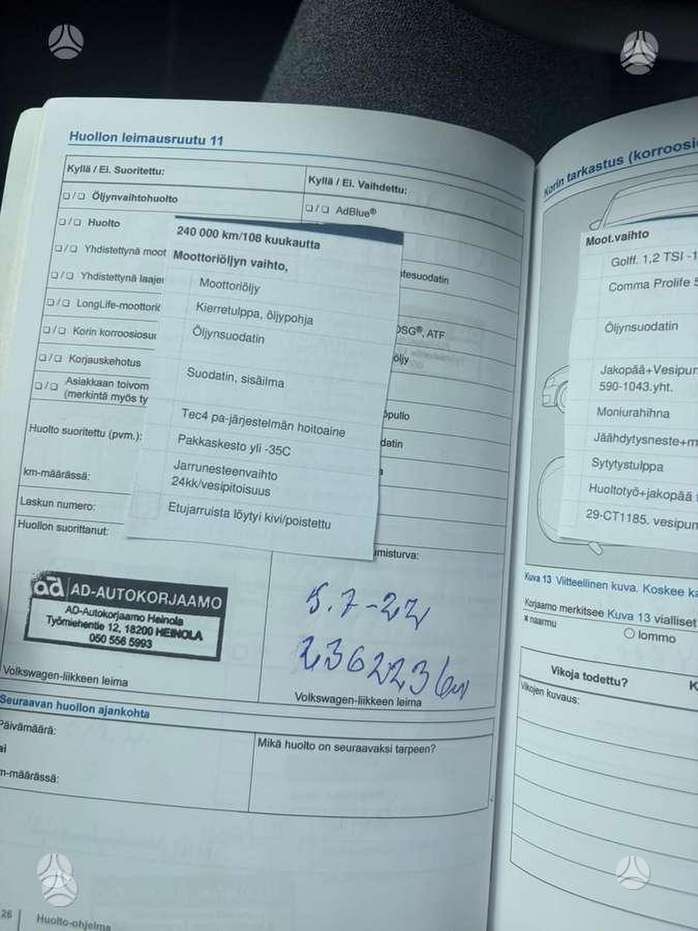 Huollon leimausruutu 11
Kyllä / Ei. Suoritettu:
Kyllä / Ei. Vaihdettu:
❑ / ❑ Öljynvaihtohuolto
❑ / ❑ AdBlue®
❑ / ❑ Huolto
❑ / ❑ Yhdistettynä moot
❑ / ❑ Yhdistettynä laajen
❑ / ❑ LongLife-moottoriö
❑ / ❑ Korin korroosiosu
❑ / ❑ Korjauskehotus
❑ / ❑ Asiakkaan toivom
(merkintä myös ty
240 000 km/108 kuukautta
Moottoriöljyn vaihto,
Moottoriöljy
Kierretulppa, öljypohja
Öljynsuodatin
Suodatin, sisäilma
Tec4 pa-järjestelmän hoitoaine
Pakkaskesto yli -35C
Jarrunesteenvaihto
24kk/vesipitoisuus
Etujarruista löytyi kivi/poistettu
DSG®, ATF
Huolto suoritettu (pvm.):
km-määrässä:
Laskun numero:
Huollon suorittanut:
ad AD-AUTOKORJAAMO
AD-Autokorjaamo Heinola
Työmiehentie 12, 18200 HEINOLA
050 556 5993
Volkswagen-liikkeen leima
5.7-22
236223 km
Volkswagen-liikkeen leima
Seuraavan huollon ajankohta
Päivämäärä:
ai
m-määrässä:
Mikä huolto on seuraavaksi tarpeen?
26 Huolto-ohjelma
Korin tarkastus (korroosio
Moot.vaihto
Golff. 1,2 TSI -1
Comma Prolife 5
Öljynsuodatin
Jakopää+Vesipur
590-1043.yht.
Moniurahihna
Jäähdytysneste+m
Sytytystulppa
Huoltotyö+jakopää
29-CT1185. vesipum
Kuva 13 Viitteellinen kuva. Koskee ka
Korjaamo merkitsee Kuva 13 vialliset
× naarmu
○ lommo
Vikoja todettu?
Vikojen kuvaus: